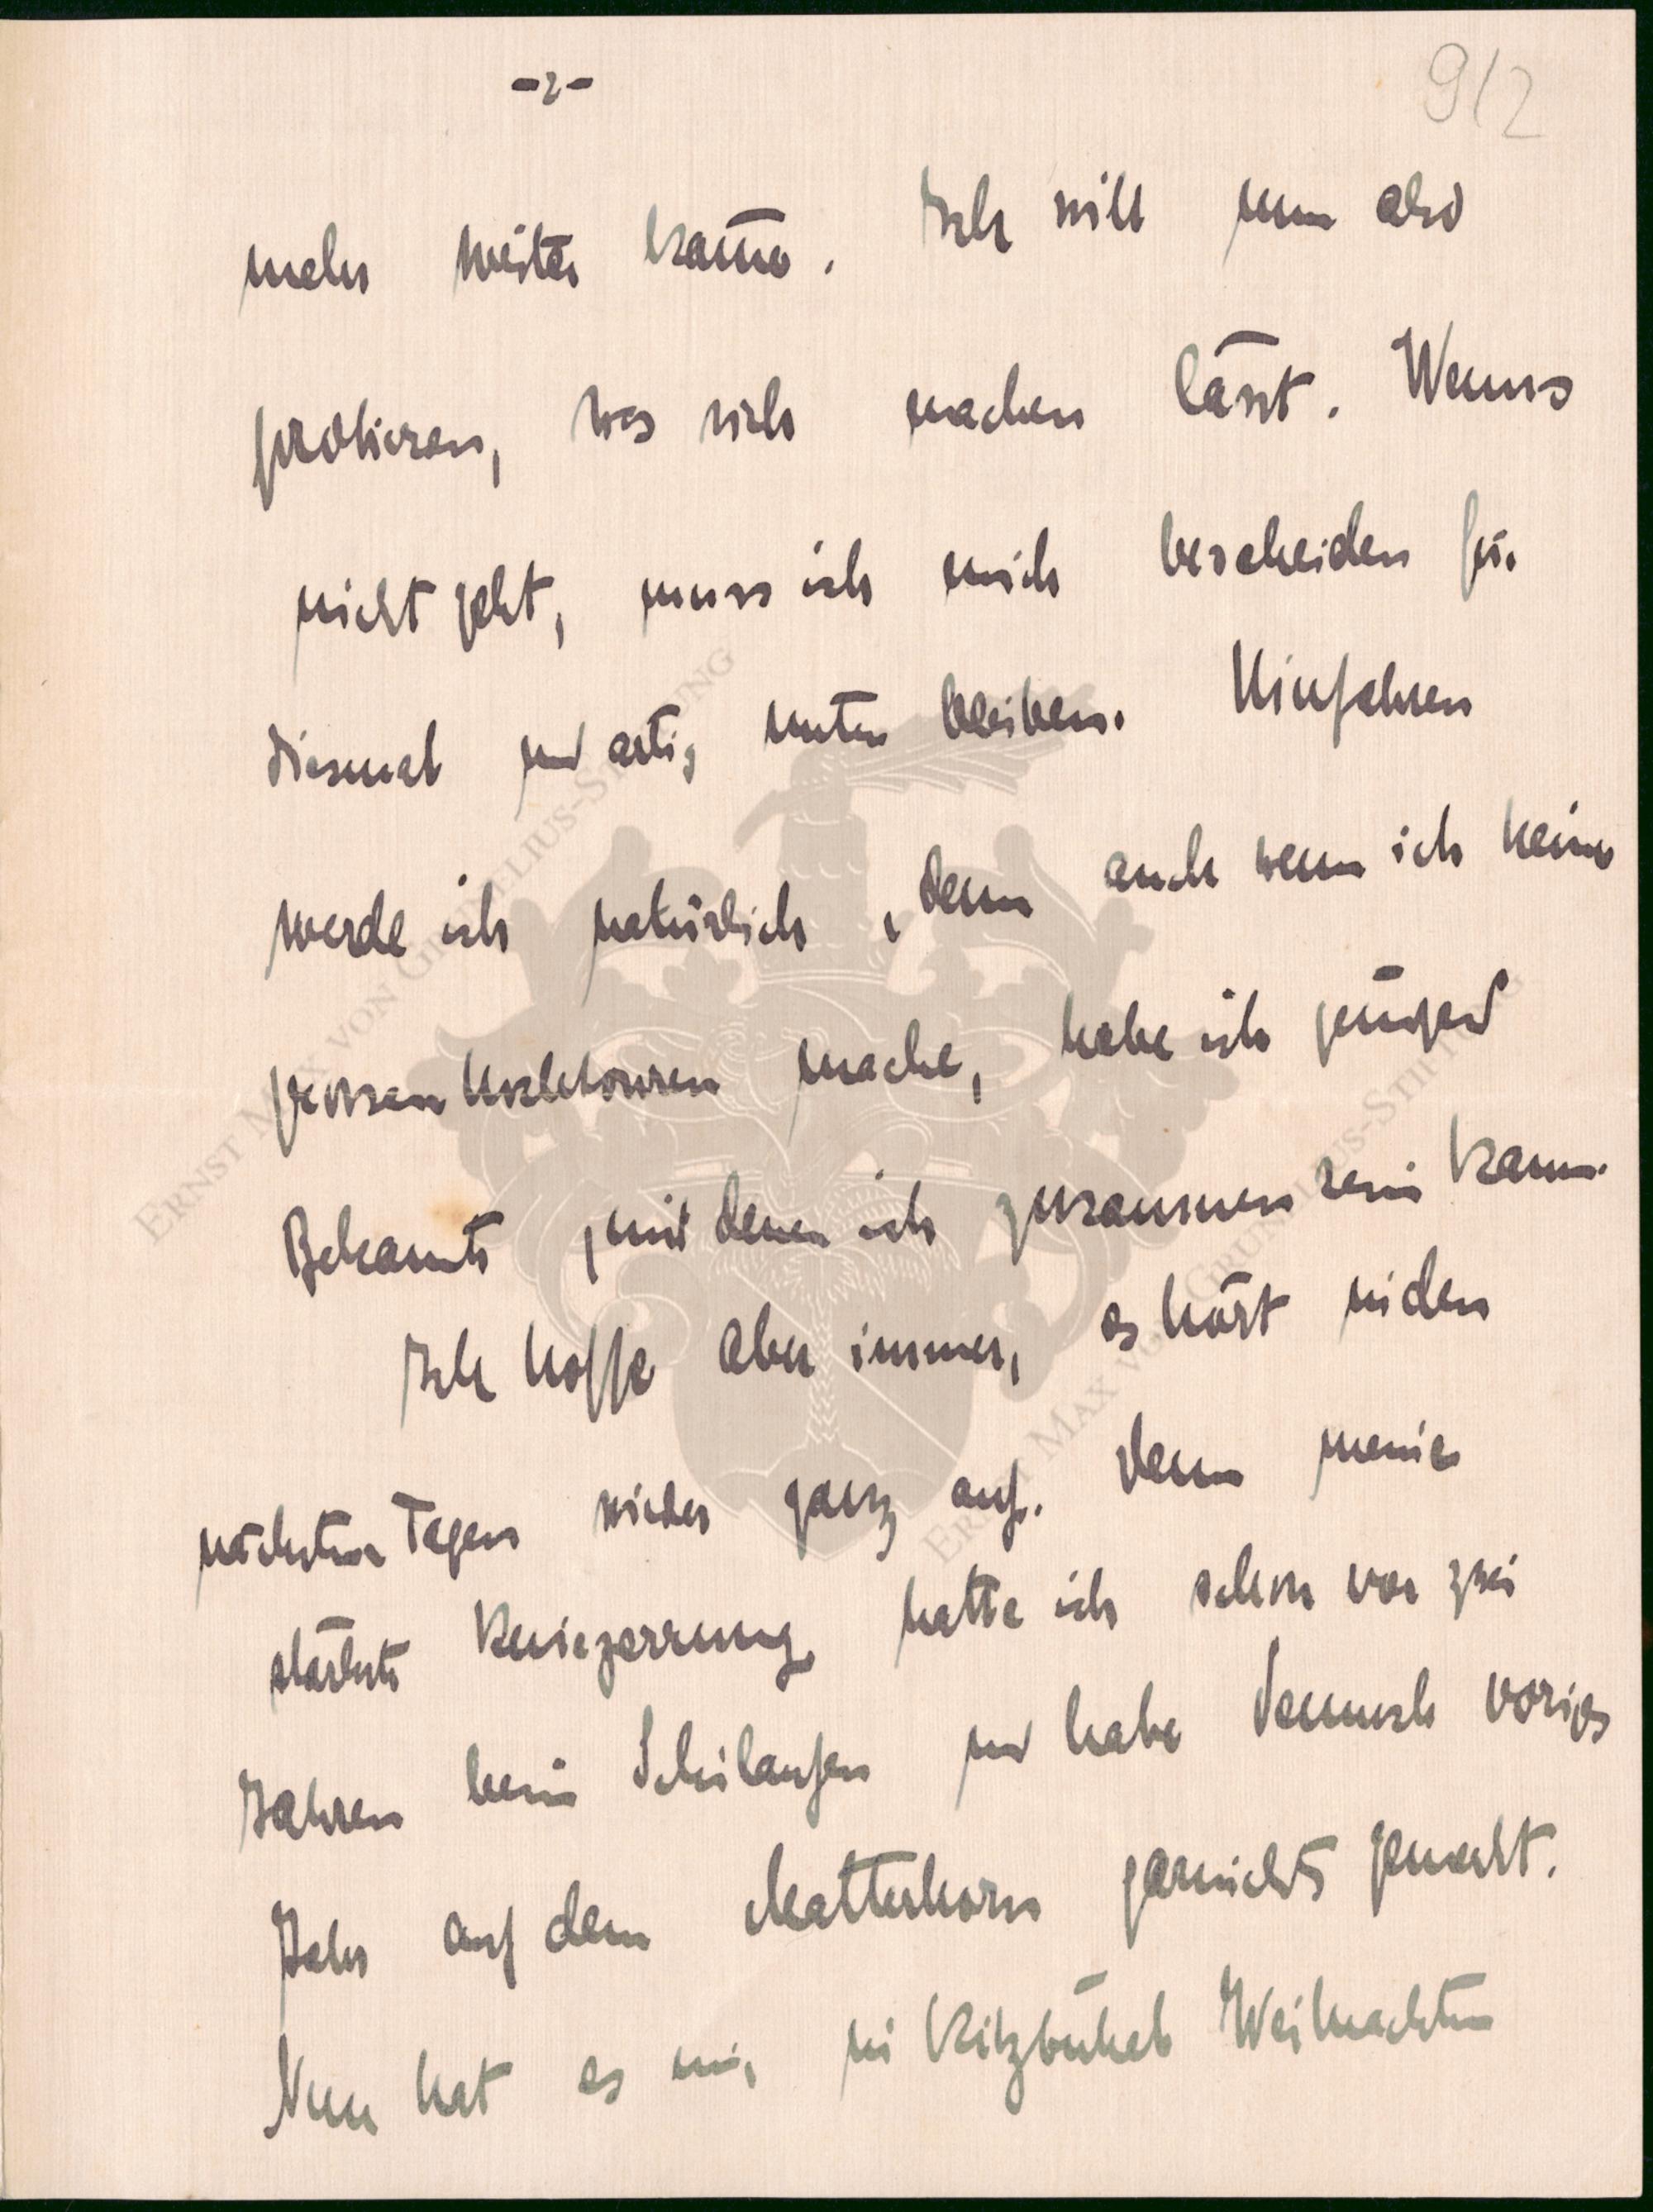 -2-
9/2
mehr weiter käme. Ich will nun also
probieren, was sich machen lässt. Wenns
nicht geht, muss ich mich bescheiden für
diesmal und artig unten bleiben. Hinfahren
werde ich natürlich, denn auch wenn ich keine
grossen Hochtouren mache, habe ich genügend
Bekannte, mit denen ich zusammen sein kann.
Ich hoffe aber immer, es hört in den
nächsten Tagen wieder ganz auf. Denn meine
stärkste Kniezerrung hatte ich schon vor zwei
Jahren beim Schilaufen und habe dennoch voriges
Jahr auf dem Matterhorn garnichts gemerkt.
Nun hat es mir in Kitzbühel Weihnachten
ERNST MAX VON GRUNELIUS-STIFTUNG
ERNST MAX VON GRUNELIUS-STIFTUNG